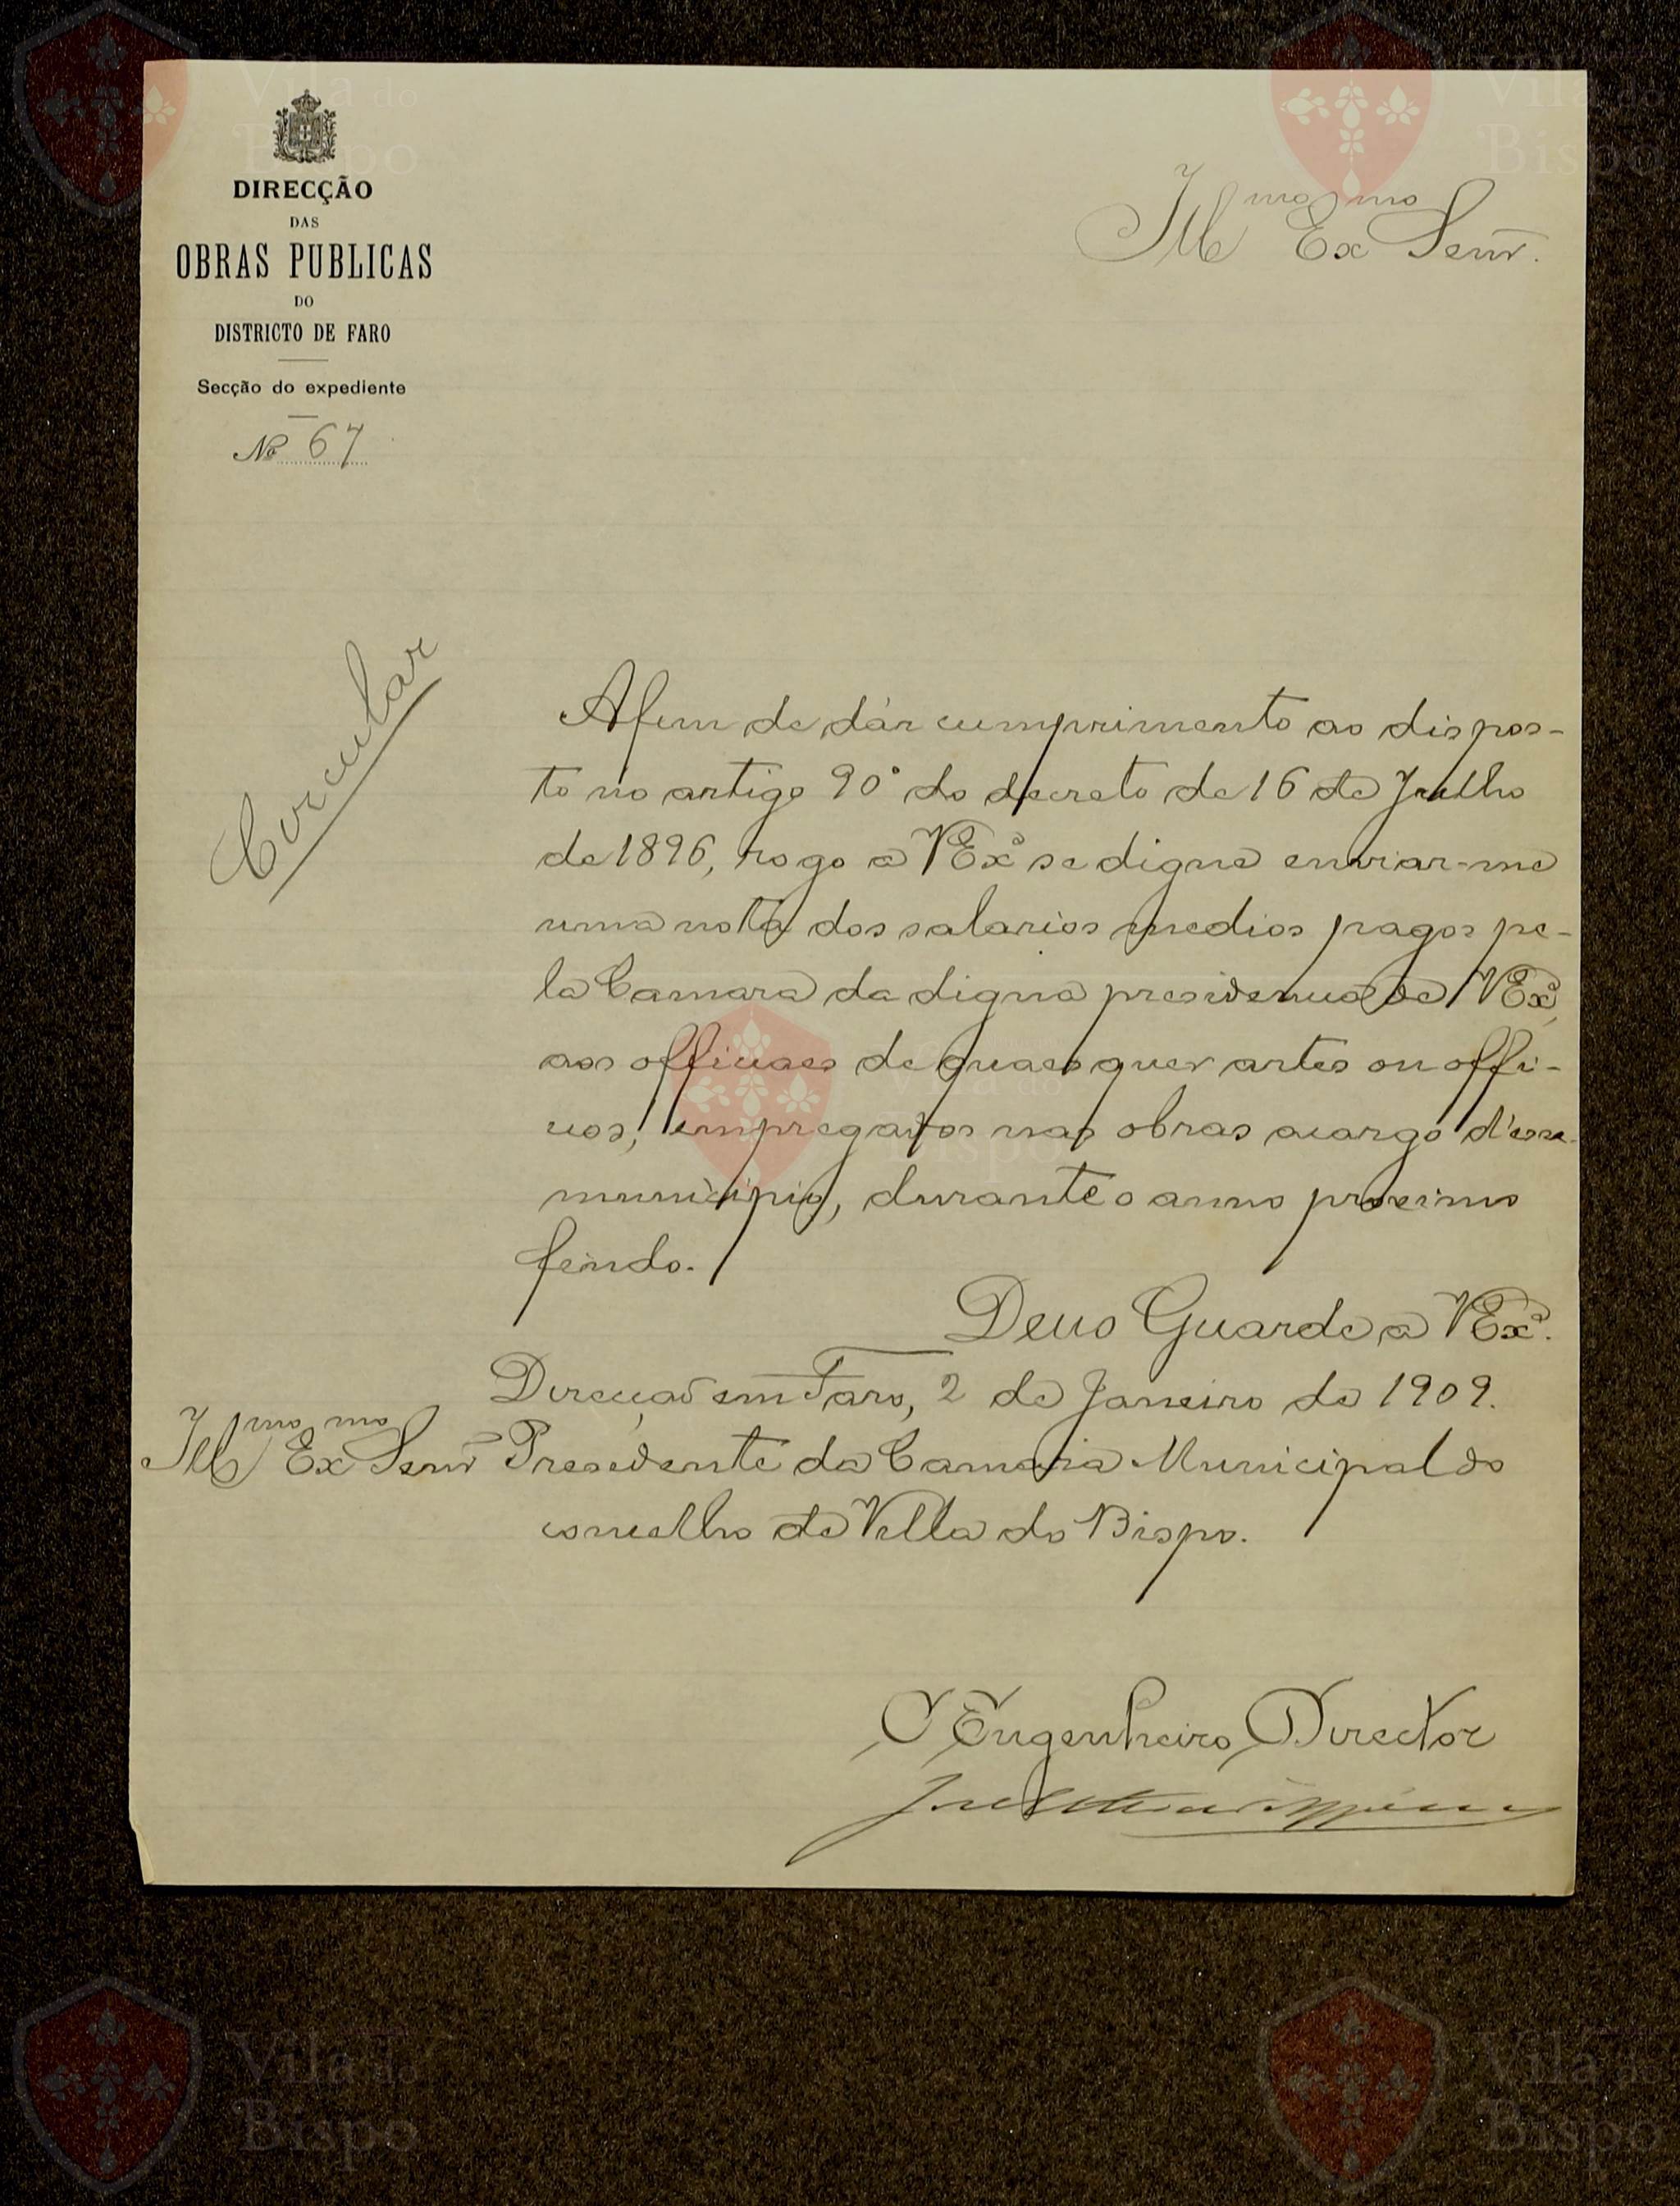 DIRECÇÃO
DAS
OBRAS PUBLICAS
DO
DISTRICTO DE FARO
Secção do expediente
Nº 67
Illmo Exmo Senr.
Circular
Afim de dár cumprimento ao dispos-
to no artigo 90º do decreto de 16 de Julho
de 1896, rogo a VExª se digne enviar-me
uma nota dos salarios medios pagos pe-
la Camara da digna presidencia de VExª,
aos officiaes de quaesquer artes ou offi-
cios, empregados nas obras a cargo d'esse
municipio, durante o anno proximo
findo.
Deus Guarde a VExª.
Direcção em Faro, 2 de Janeiro de 1909.
Illmo Exmo Senr Presidente da Camara Municipal do
concelho de Villa do Bispo.
O Engenheiro Director
Vila do
Bispo
Vila do
Bispo
Vila do
Bispo
Vila do
Bispo
Vila do
Bispo